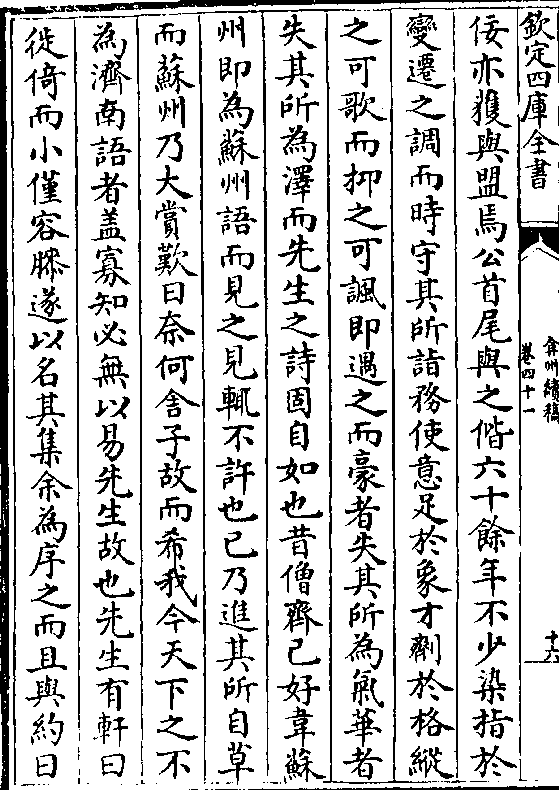 欽定四庫全書
弇州續稿
卷四十一
十六
佞亦獲與盟焉公首尾與之偕六十餘年不少染指於
變遷之調而時守其所詣務使意足於象才劑於格縱
之可歌而抑之可諷即遇之而豪者失其所為氣華者
失其所為澤而先生之詩固自如也昔僧齊已好韋蘇
州即為蘇州語而見之見輒不許也已乃進其所自草
而蘇州乃大賞歎曰奈何舍子故而希我今天下之不
為濟南語者盖寡知必無以易先生故也先生有軒曰
徙倚而小僅容膝遂以名其集余為序之而且與約曰